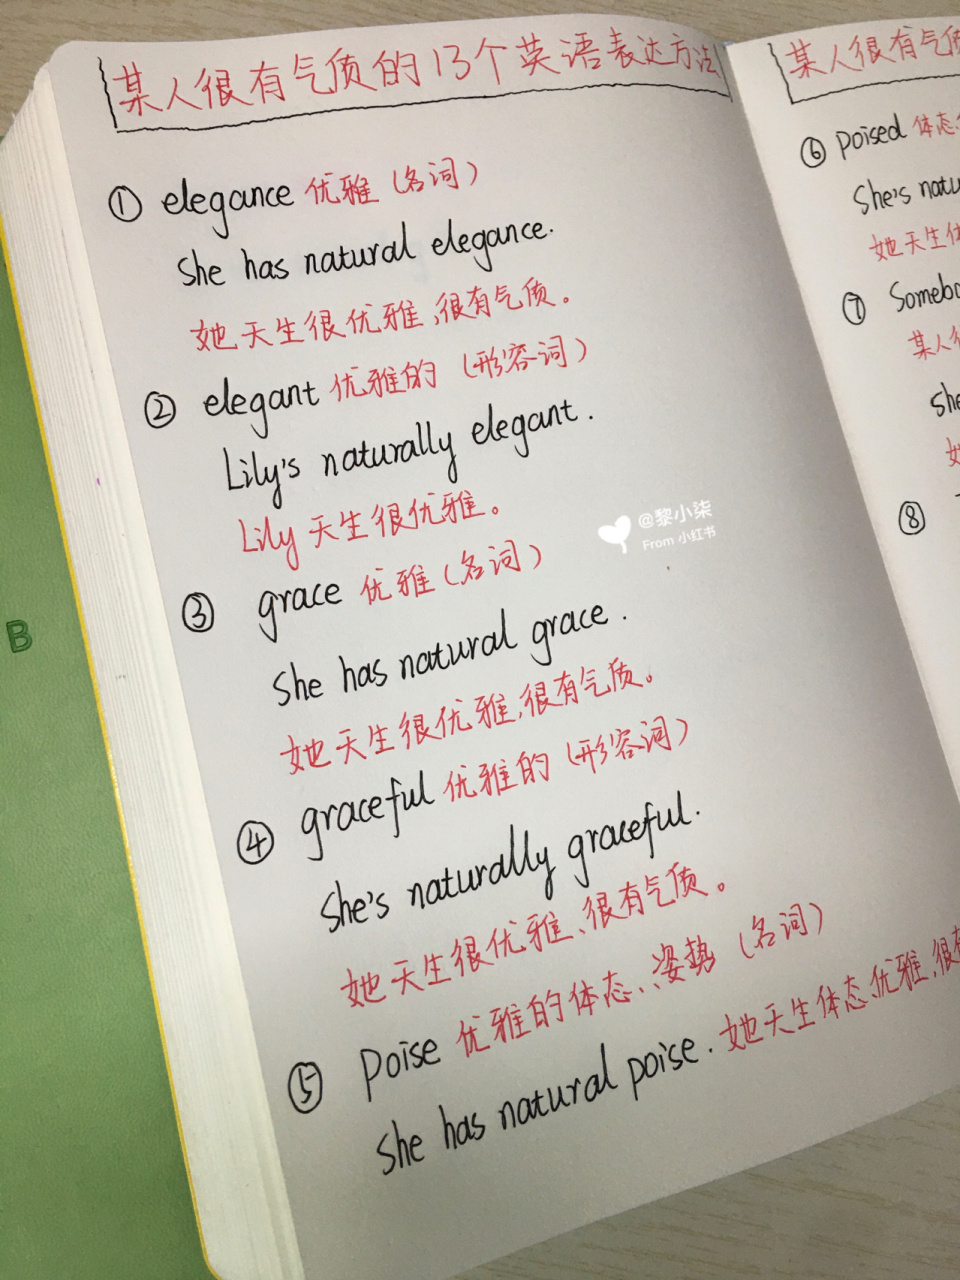 某人很有气质的13个英语表达方法
① elegance 优雅(名词)
She has natural elegance.
她天生很优雅、很有气质。
② elegant 优雅的 (形容词)
Lily's naturally elegant.
Lily 天生很优雅。
③ grace 优雅(名词)
She has natural grace.
她天生很优雅、很有气质。
④ graceful 优雅的 (形容词)
She's naturally graceful.
她天生很优雅、很有气质。
⑤ Poise 优雅的体态、姿势(名词)
She has natural poise. 她天生体态优雅、很
某人很有气质
⑥ poised 体态
She's natu
她天生体
⑦ Somebo
某人很
She
她
⑧
@黎小柒
From 小红书
B